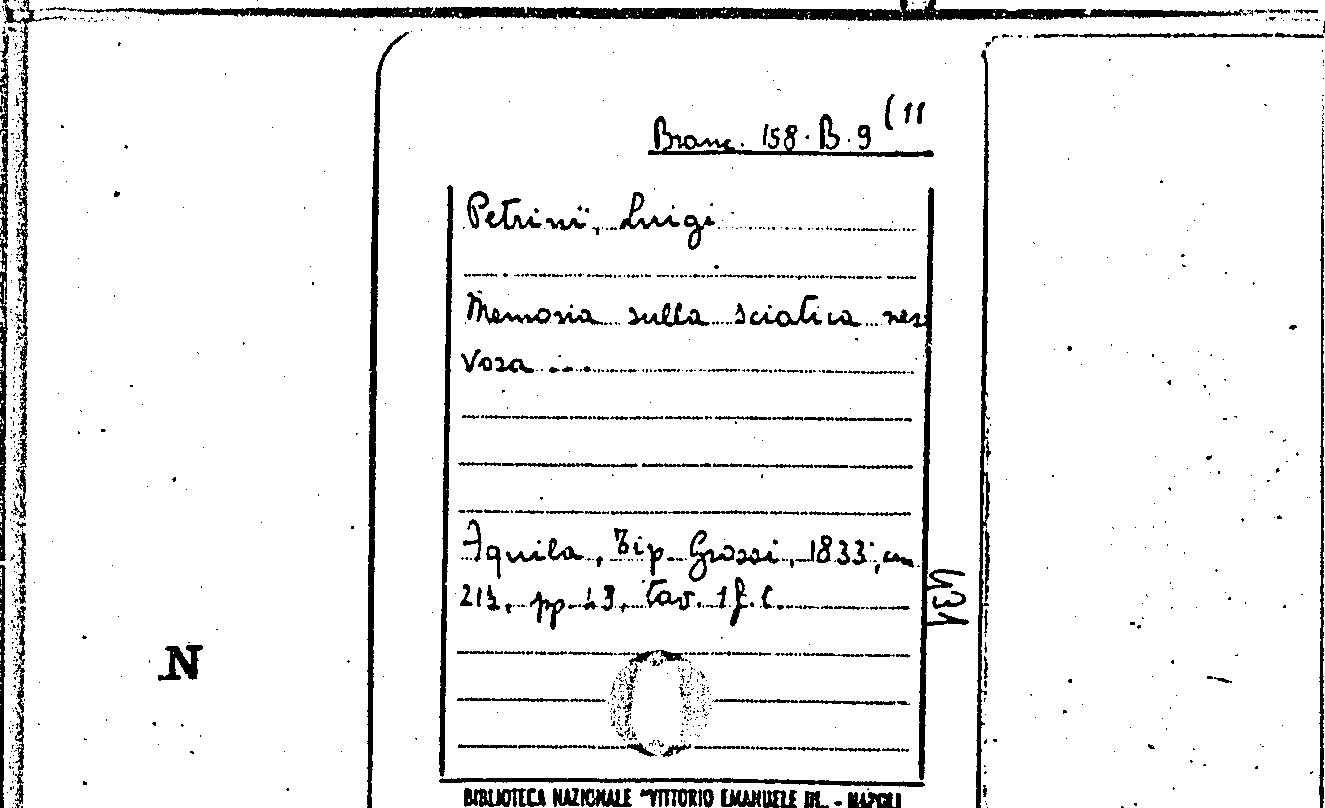 Branc. 158. B. 9 (11
Petrini, Luigi
Memoria sulla sciatica ner
vosa ...
Aquila, Tip. Grossi, 1833; cm
pp. tav. 1 f. t.
N
BIBLIOTECA NAZIONALE "VITTORIO EMANUELE III„ - NAPOLI